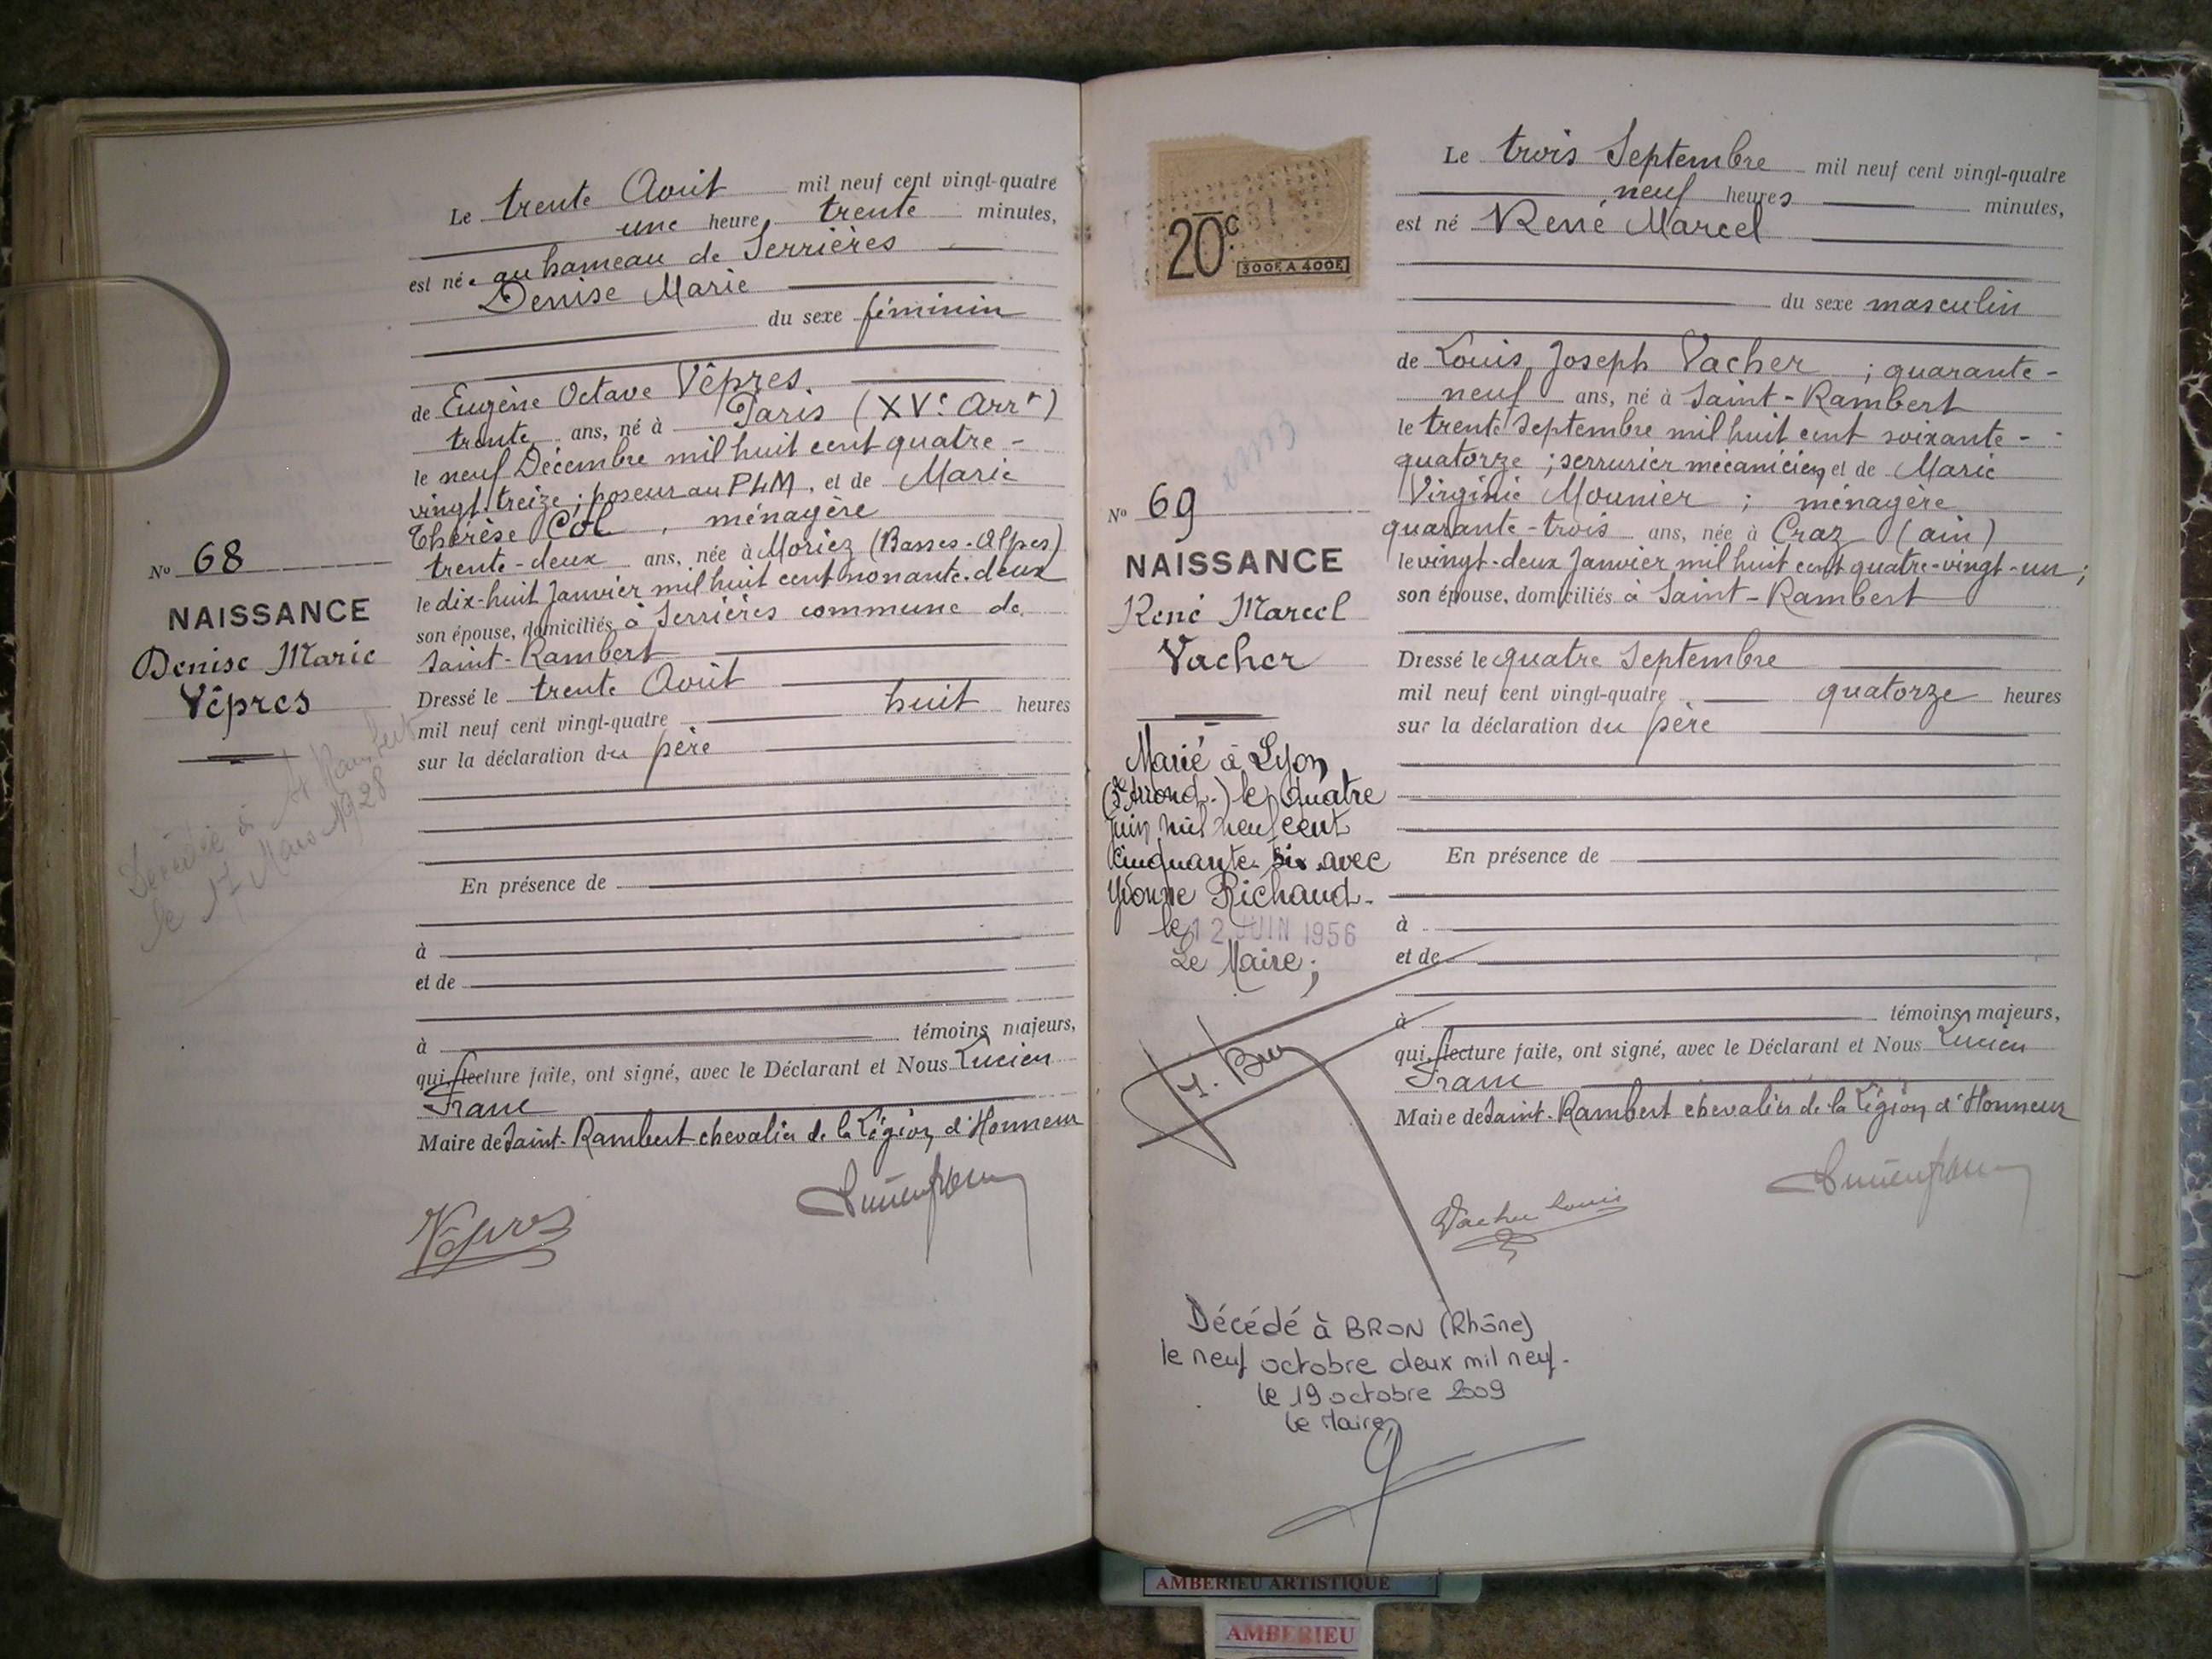 Le trente Août mil neuf cent vingt-quatre
une heure, trente minutes,
est née au hameau de Serrières
Denise Marie
du sexe féminin
de Eugène Octave Vêpres,
trente ans, né à Paris (XVe Arrt)
le neuf Décembre mil huit cent quatre-
vingt treize; poseur au PLM, et de Marie
Thérèse Col, ménagère
trente-deux ans, née à Moriez (Basses-Alpes)
le dix-huit Janvier mil huit cent nonante-deux
son épouse, domiciliés à Serrières commune de
Saint-Rambert
Dressé le trente Août
mil neuf cent vingt-quatre huit heures
sur la déclaration du père
En présence de
à
et de
à témoins majeurs,
qui, lecture faite, ont signé, avec le Déclarant et Nous Lucien
Franc
Maire de Saint-Rambert chevalier de la Légion d'Honneur
Vêpres
No 68
NAISSANCE
Denise Marie
Vêpres
Décédée à St Rambert
le 17 Mars 1928
20c
300F A 400F
No 69
NAISSANCE
René Marcel
Vacher
Marié à Lyon
Arrond.) le quatre
juin mil neuf cent
cinquante-six avec
Yvonne Richaud.
le 12 JUIN 1956
Le Maire;
Le trois Septembre mil neuf cent vingt-quatre
neuf heures minutes,
est né René Marcel
du sexe masculin
de Louis Joseph Vacher; quarante-
neuf ans, né à Saint-Rambert
le trente Septembre mil huit cent soixante-
quatorze; serrurier mécanicien, et de Marie
Virginie Mounier; ménagère
quarante-trois ans, née à Craz (ain)
le vingt-deux Janvier mil huit cent quatre-vingt-un;
son épouse, domiciliés à Saint-Rambert
Dressé le quatre Septembre
mil neuf cent vingt-quatre quatorze heures
sur la déclaration du père
En présence de
à
et de
à témoins majeurs,
qui, lecture faite, ont signé, avec le Déclarant et Nous Lucien
Franc
Maire de Saint-Rambert chevalier de la Légion d'Honneur
Vacher Louis
Décédé à BRON (Rhône)
le neuf octobre deux mil neuf.
le 19 octobre 2009
Le Maire,
AMBERIEU ARTISTIQUE
AMBERIEU